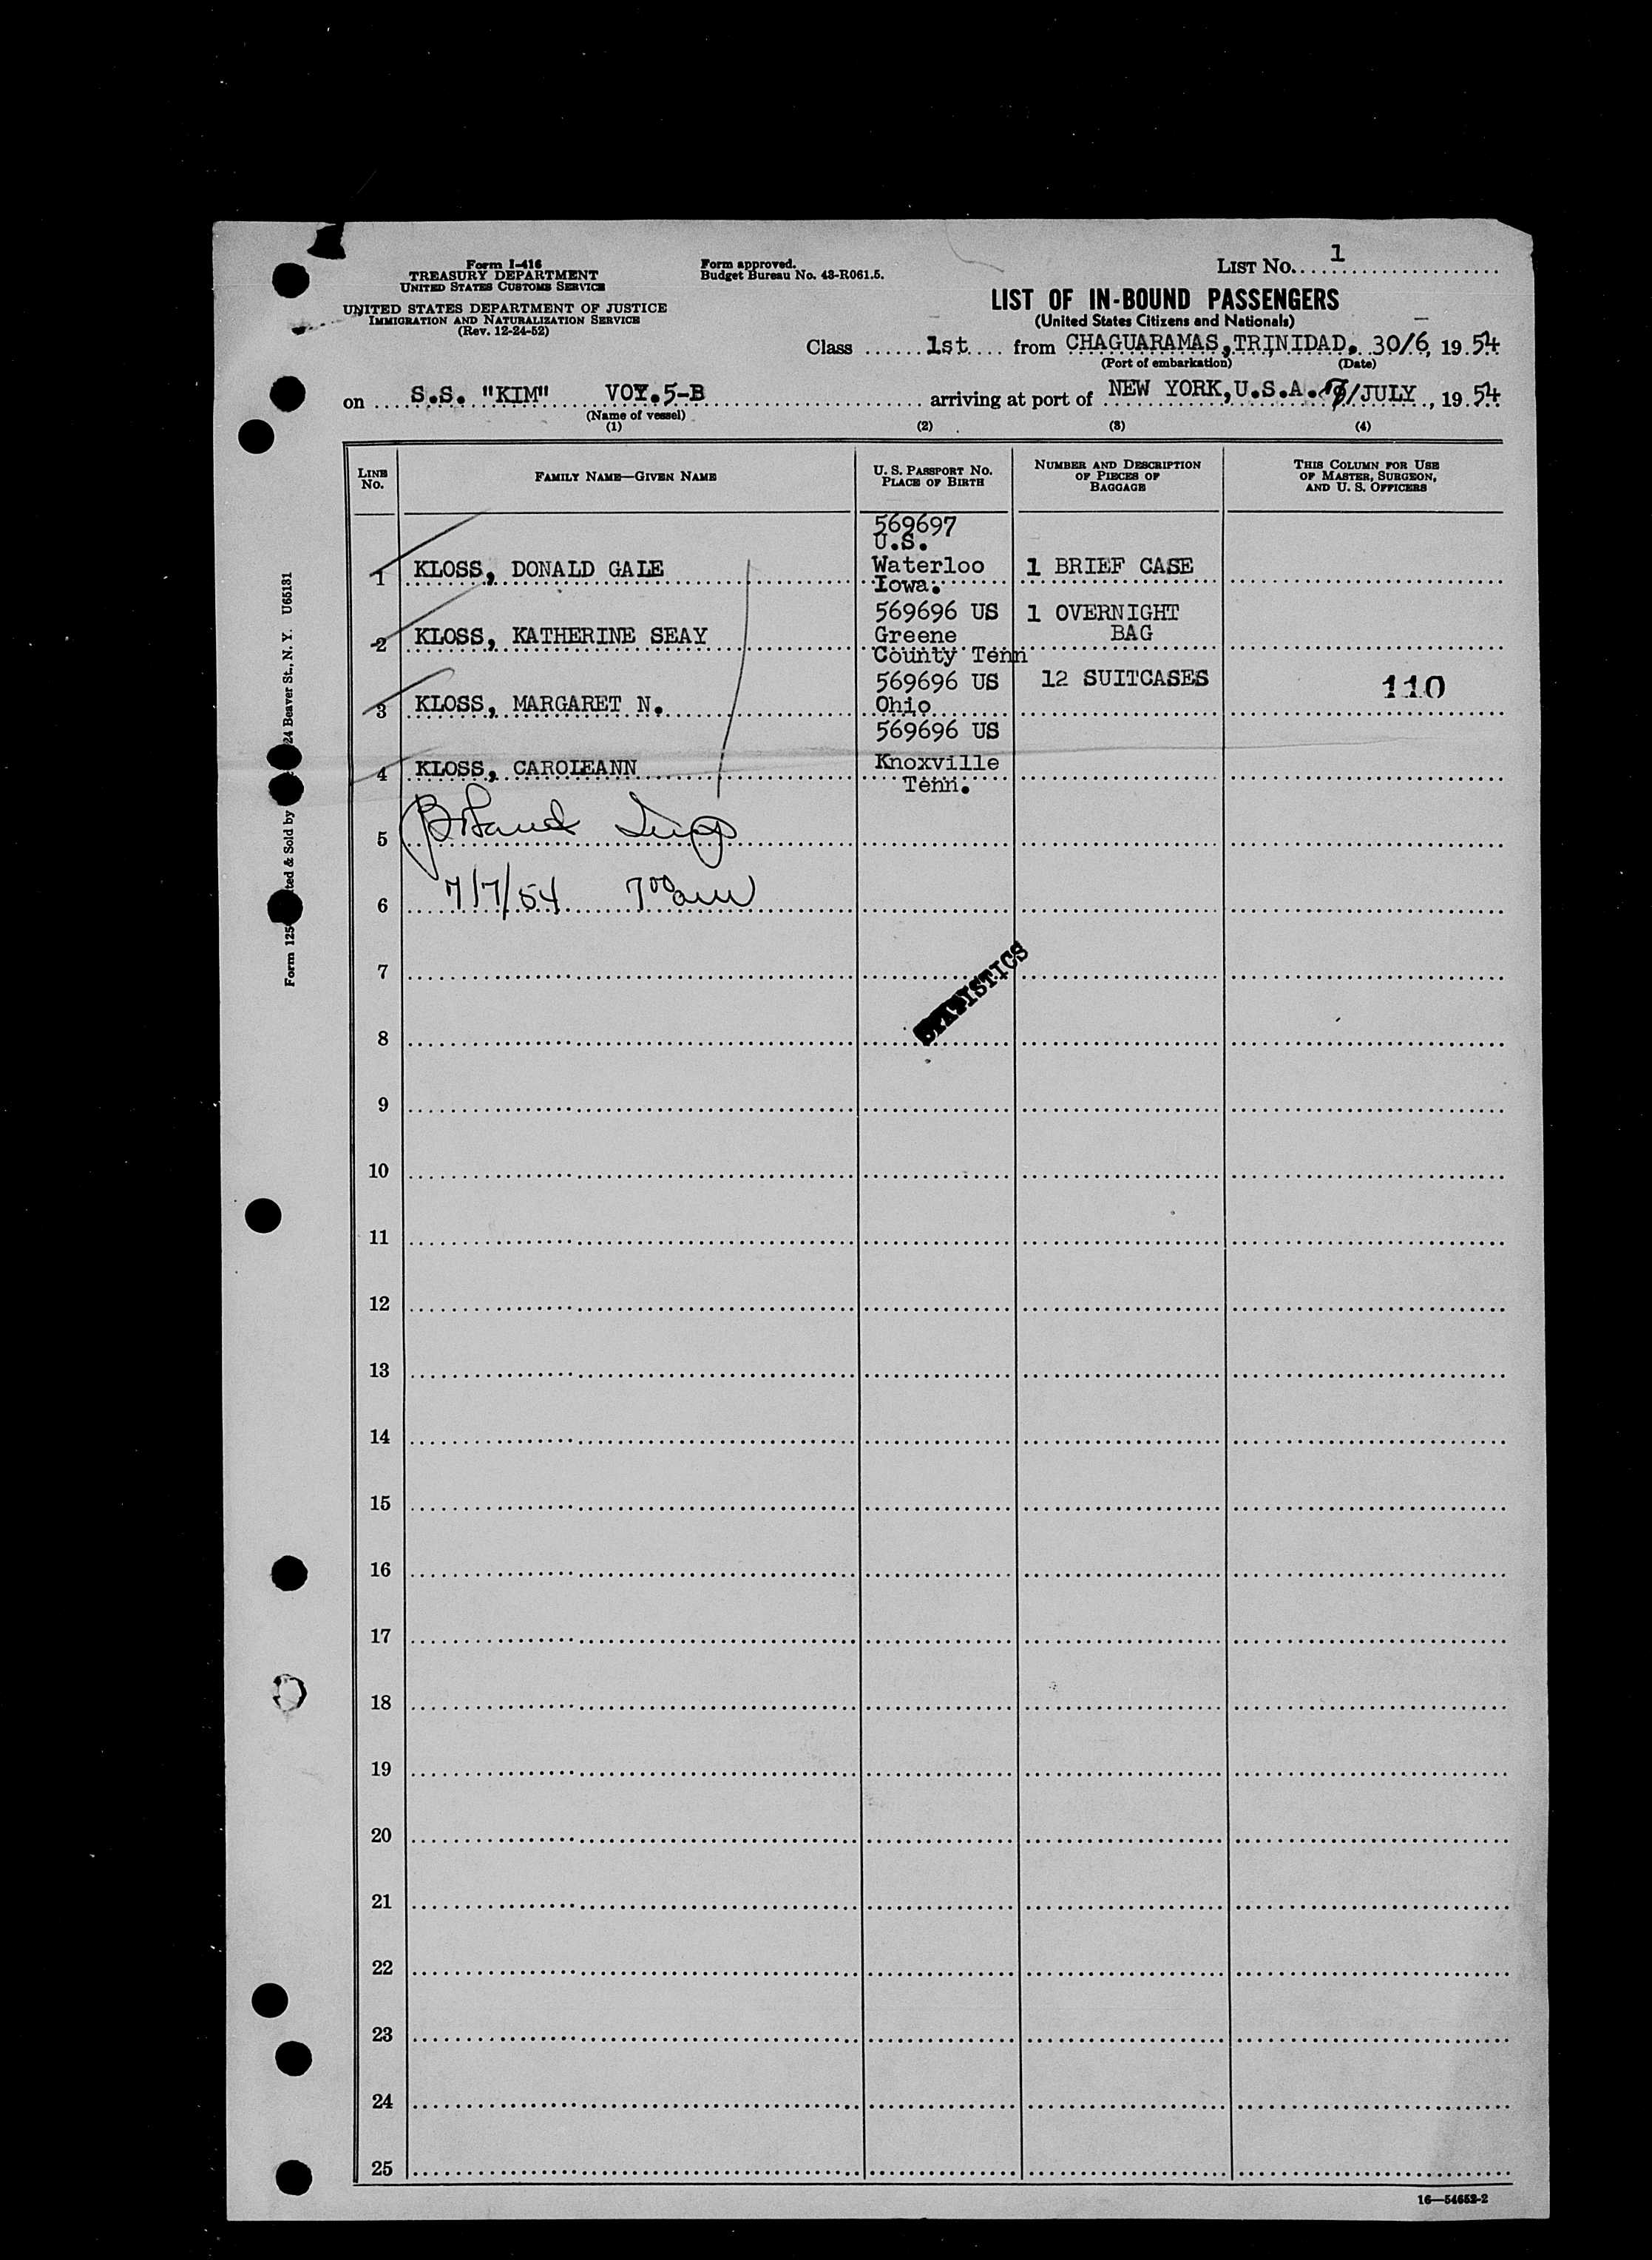 Form I-416
TREASURY DEPARTMENT
UNITED STATES CUSTOMS SERVICE
UNITED STATES DEPARTMENT OF JUSTICE
IMMIGRATION AND NATURALIZATION SERVICE
(Rev. 12-24-52)
Form approved.
Budget Bureau No. 43-R061.5.
LIST No. 1
LIST OF IN-BOUND PASSENGERS
(United States Citizens and Nationals)
Class 1st from CHAGUARAMAS, TRINIDAD. 30/6, 1954
(Port of embarkation) (Date)
on S.S. "KIM" VOY.5-B arriving at port of NEW YORK, U.S.A. /JULY, 1954
(Name of vessel)
(1) (2) (3) (4)
LINE No. FAMILY NAME—GIVEN NAME U. S. PASSPORT No. PLACE OF BIRTH NUMBER AND DESCRIPTION OF PIECES OF BAGGAGE THIS COLUMN FOR USE OF MASTER, SURGEON, AND U. S. OFFICERS
569697
U.S.
1 KLOSS, DONALD GALE Waterloo 1 BRIEF CASE
Iowa.
569696 US 1 OVERNIGHT
2 KLOSS, KATHERINE SEAY Greene BAG
County Tenn
569696 US 12 SUITCASES 110
3 KLOSS, MARGARET N. Ohio
569696 US
4 KLOSS, CAROLEANN Knoxville
Tenn.
5
6 7/7/54 7 00 am
7
STATISTICS
8
9
10
11
12
13
14
15
16
17
18
19
20
21
22
23
24
25
16—54652-2
Form 125 ted & Sold by 24 Beaver St., N. Y. U65131